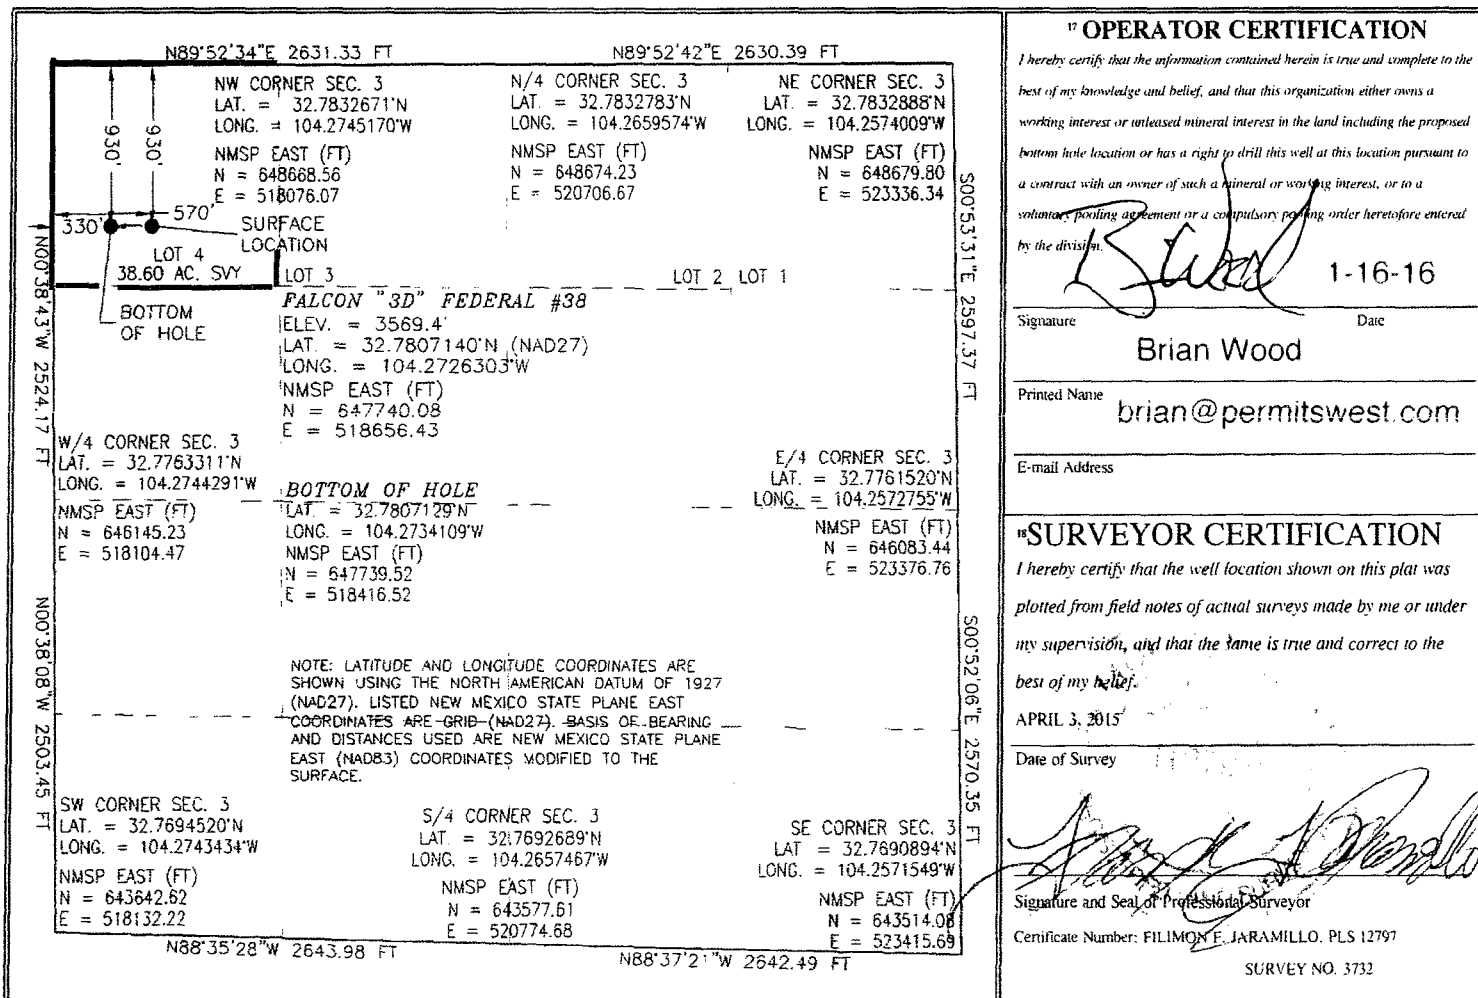 N89°52'34"E 2631.33 FT
N89°52'42"E 2630.39 FT
NW CORNER SEC. 3
LAT. = 32.7832671°N
LONG. = 104.2745170°W
NMSP EAST (FT)
N = 648668.56
E = 518076.07
N/4 CORNER SEC. 3
LAT. = 32.7832783°N
LONG. = 104.2659574°W
NMSP EAST (FT)
N = 648674.23
E = 520706.67
NE CORNER SEC. 3
LAT. = 32.7832888°N
LONG. = 104.2574009°W
NMSP EAST (FT)
N = 648679.80
E = 523336.34
930'
930'
570'
330'
SURFACE
LOCATION
LOT 4
38.60 AC. SVY
LOT 3
LOT 2
LOT 1
BOTTOM
OF HOLE
FALCON "3D" FEDERAL #38
ELEV. = 3569.4'
LAT. = 32.7807140°N (NAD27)
LONG. = 104.2726303°W
NMSP EAST (FT)
N = 647740.08
E = 518656.43
N00°38'43"W 2524.17 FT
S00°53'31"E 2597.37 FT
W/4 CORNER SEC. 3
LAT. = 32.7763311°N
LONG. = 104.2744291°W
NMSP EAST (FT)
N = 646145.23
E = 518104.47
BOTTOM OF HOLE
LAT. = 32.7807129°N
LONG. = 104.2734109°W
NMSP EAST (FT)
N = 647739.52
E = 518416.52
E/4 CORNER SEC. 3
LAT. = 32.7761520°N
LONG. = 104.2572755°W
NMSP EAST (FT)
N = 646083.44
E = 523376.76
N00°38'08"W 2503.45 FT
S00°52'06"E 2570.35 FT
NOTE: LATITUDE AND LONGITUDE COORDINATES ARE
SHOWN USING THE NORTH AMERICAN DATUM OF 1927
(NAD27). LISTED NEW MEXICO STATE PLANE EAST
COORDINATES ARE GRID (NAD27). BASIS OF BEARING
AND DISTANCES USED ARE NEW MEXICO STATE PLANE
EAST (NAD83) COORDINATES MODIFIED TO THE
SURFACE.
SW CORNER SEC. 3
LAT. = 32.7694520°N
LONG. = 104.2743434°W
NMSP EAST (FT)
N = 643642.62
E = 518132.22
S/4 CORNER SEC. 3
LAT. = 32.7692689°N
LONG. = 104.2657467°W
NMSP EAST (FT)
N = 643577.61
E = 520774.68
SE CORNER SEC. 3
LAT = 32.7690894°N
LONG. = 104.2571549°W
NMSP EAST (FT)
N = 643514.08
E = 523415.69
N88°35'28"W 2643.98 FT
N88°37'21"W 2642.49 FT
17 OPERATOR CERTIFICATION
I hereby certify that the information contained herein is true and complete to the
best of my knowledge and belief, and that this organization either owns a
working interest or unleased mineral interest in the land including the proposed
bottom hole location or has a right to drill this well at this location pursuant to
a contract with an owner of such a mineral or working interest, or to a
voluntary pooling agreement or a compulsory pooling order heretofore entered
by the division.
B Wood
1-16-16
Signature Date
Brian Wood
Printed Name
brian@permitswest.com
E-mail Address
18 SURVEYOR CERTIFICATION
I hereby certify that the well location shown on this plat was
plotted from field notes of actual surveys made by me or under
my supervision, and that the same is true and correct to the
best of my belief.
APRIL 3, 2015
Date of Survey
Signature and Seal of Professional Surveyor
Certificate Number: FILIMON F. JARAMILLO, PLS 12797
SURVEY NO. 3732